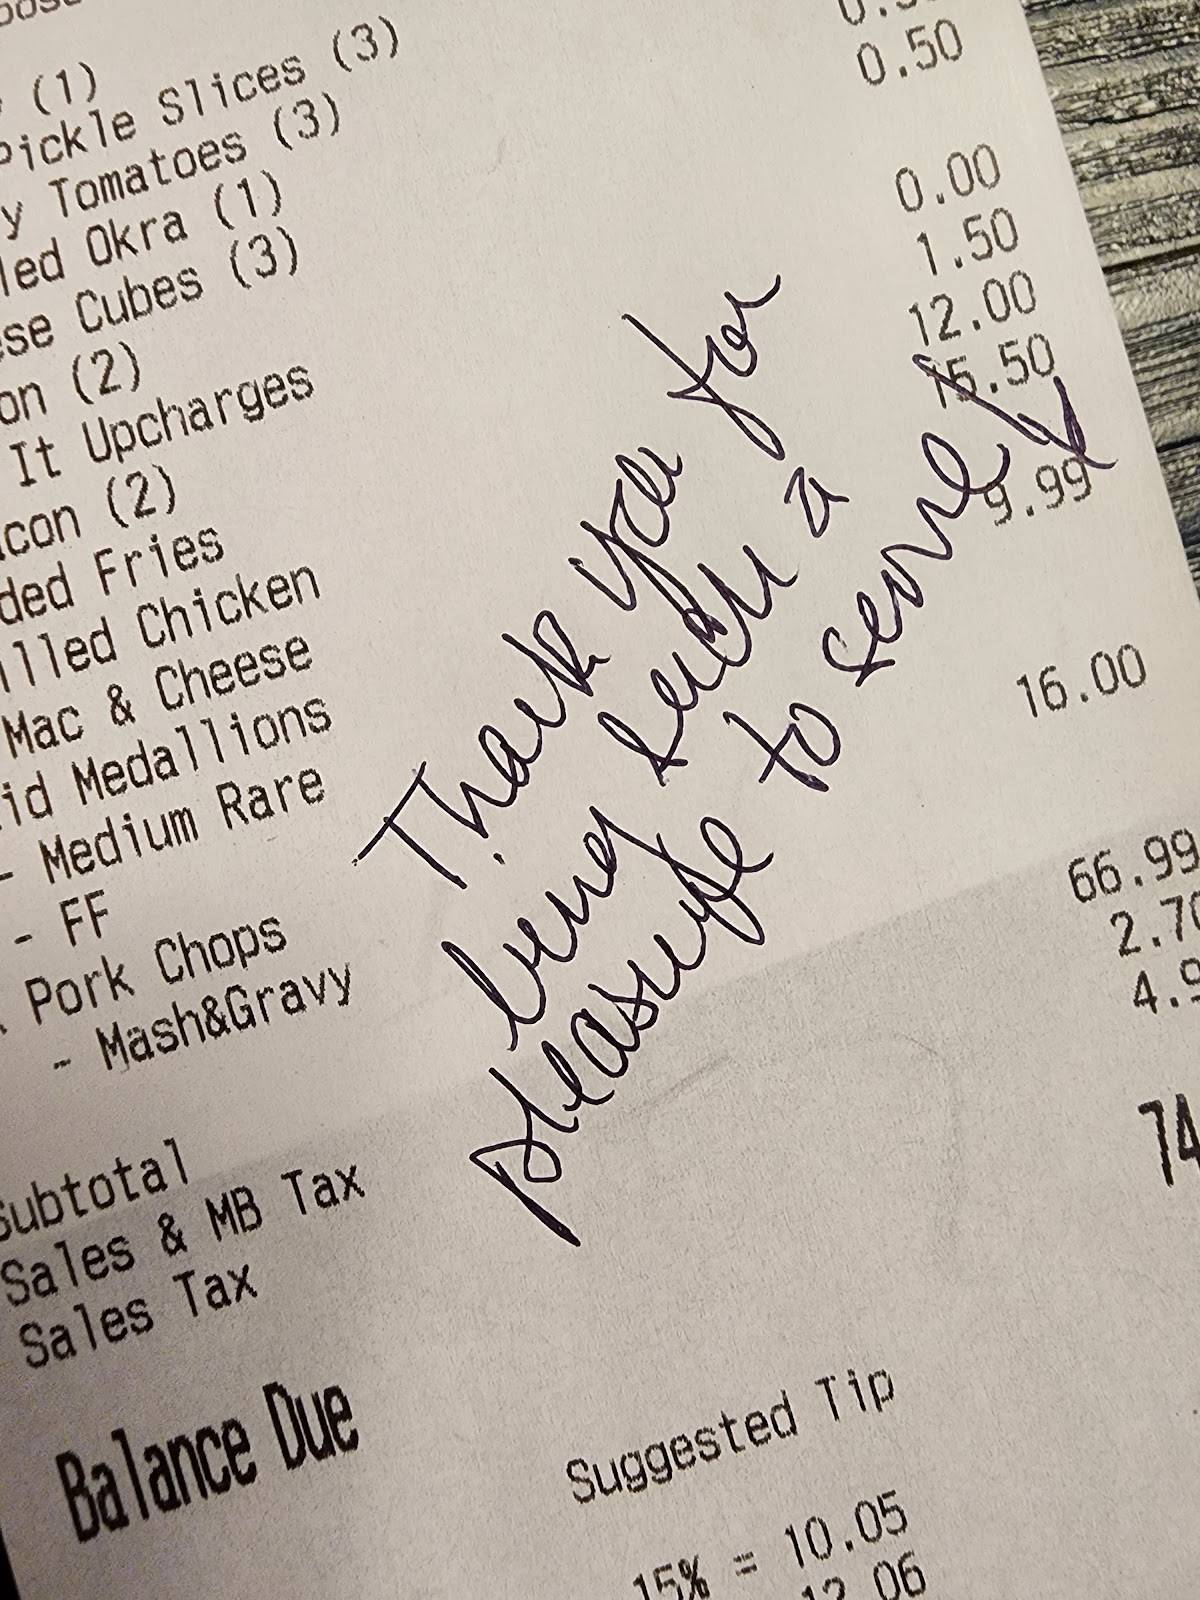 (1)
Pickle Slices (3) 0.50
Tomatoes (3)
Okra (1) 0.00
Cubes (3) 1.50
(2) 12.00
It Upcharges 15.50
(2)
Fries 9.99
Chicken
Mac & Cheese 16.00
Medallions
- Medium Rare
- FF
Pork Chops
- Mash&Gravy
Subtotal 66.99
Sales & MB Tax 2.70
Sales Tax 4.9
Balance Due 74
Suggested Tip
15% = 10.05
12.06
Thank you for
being such a
pleasure to serve!